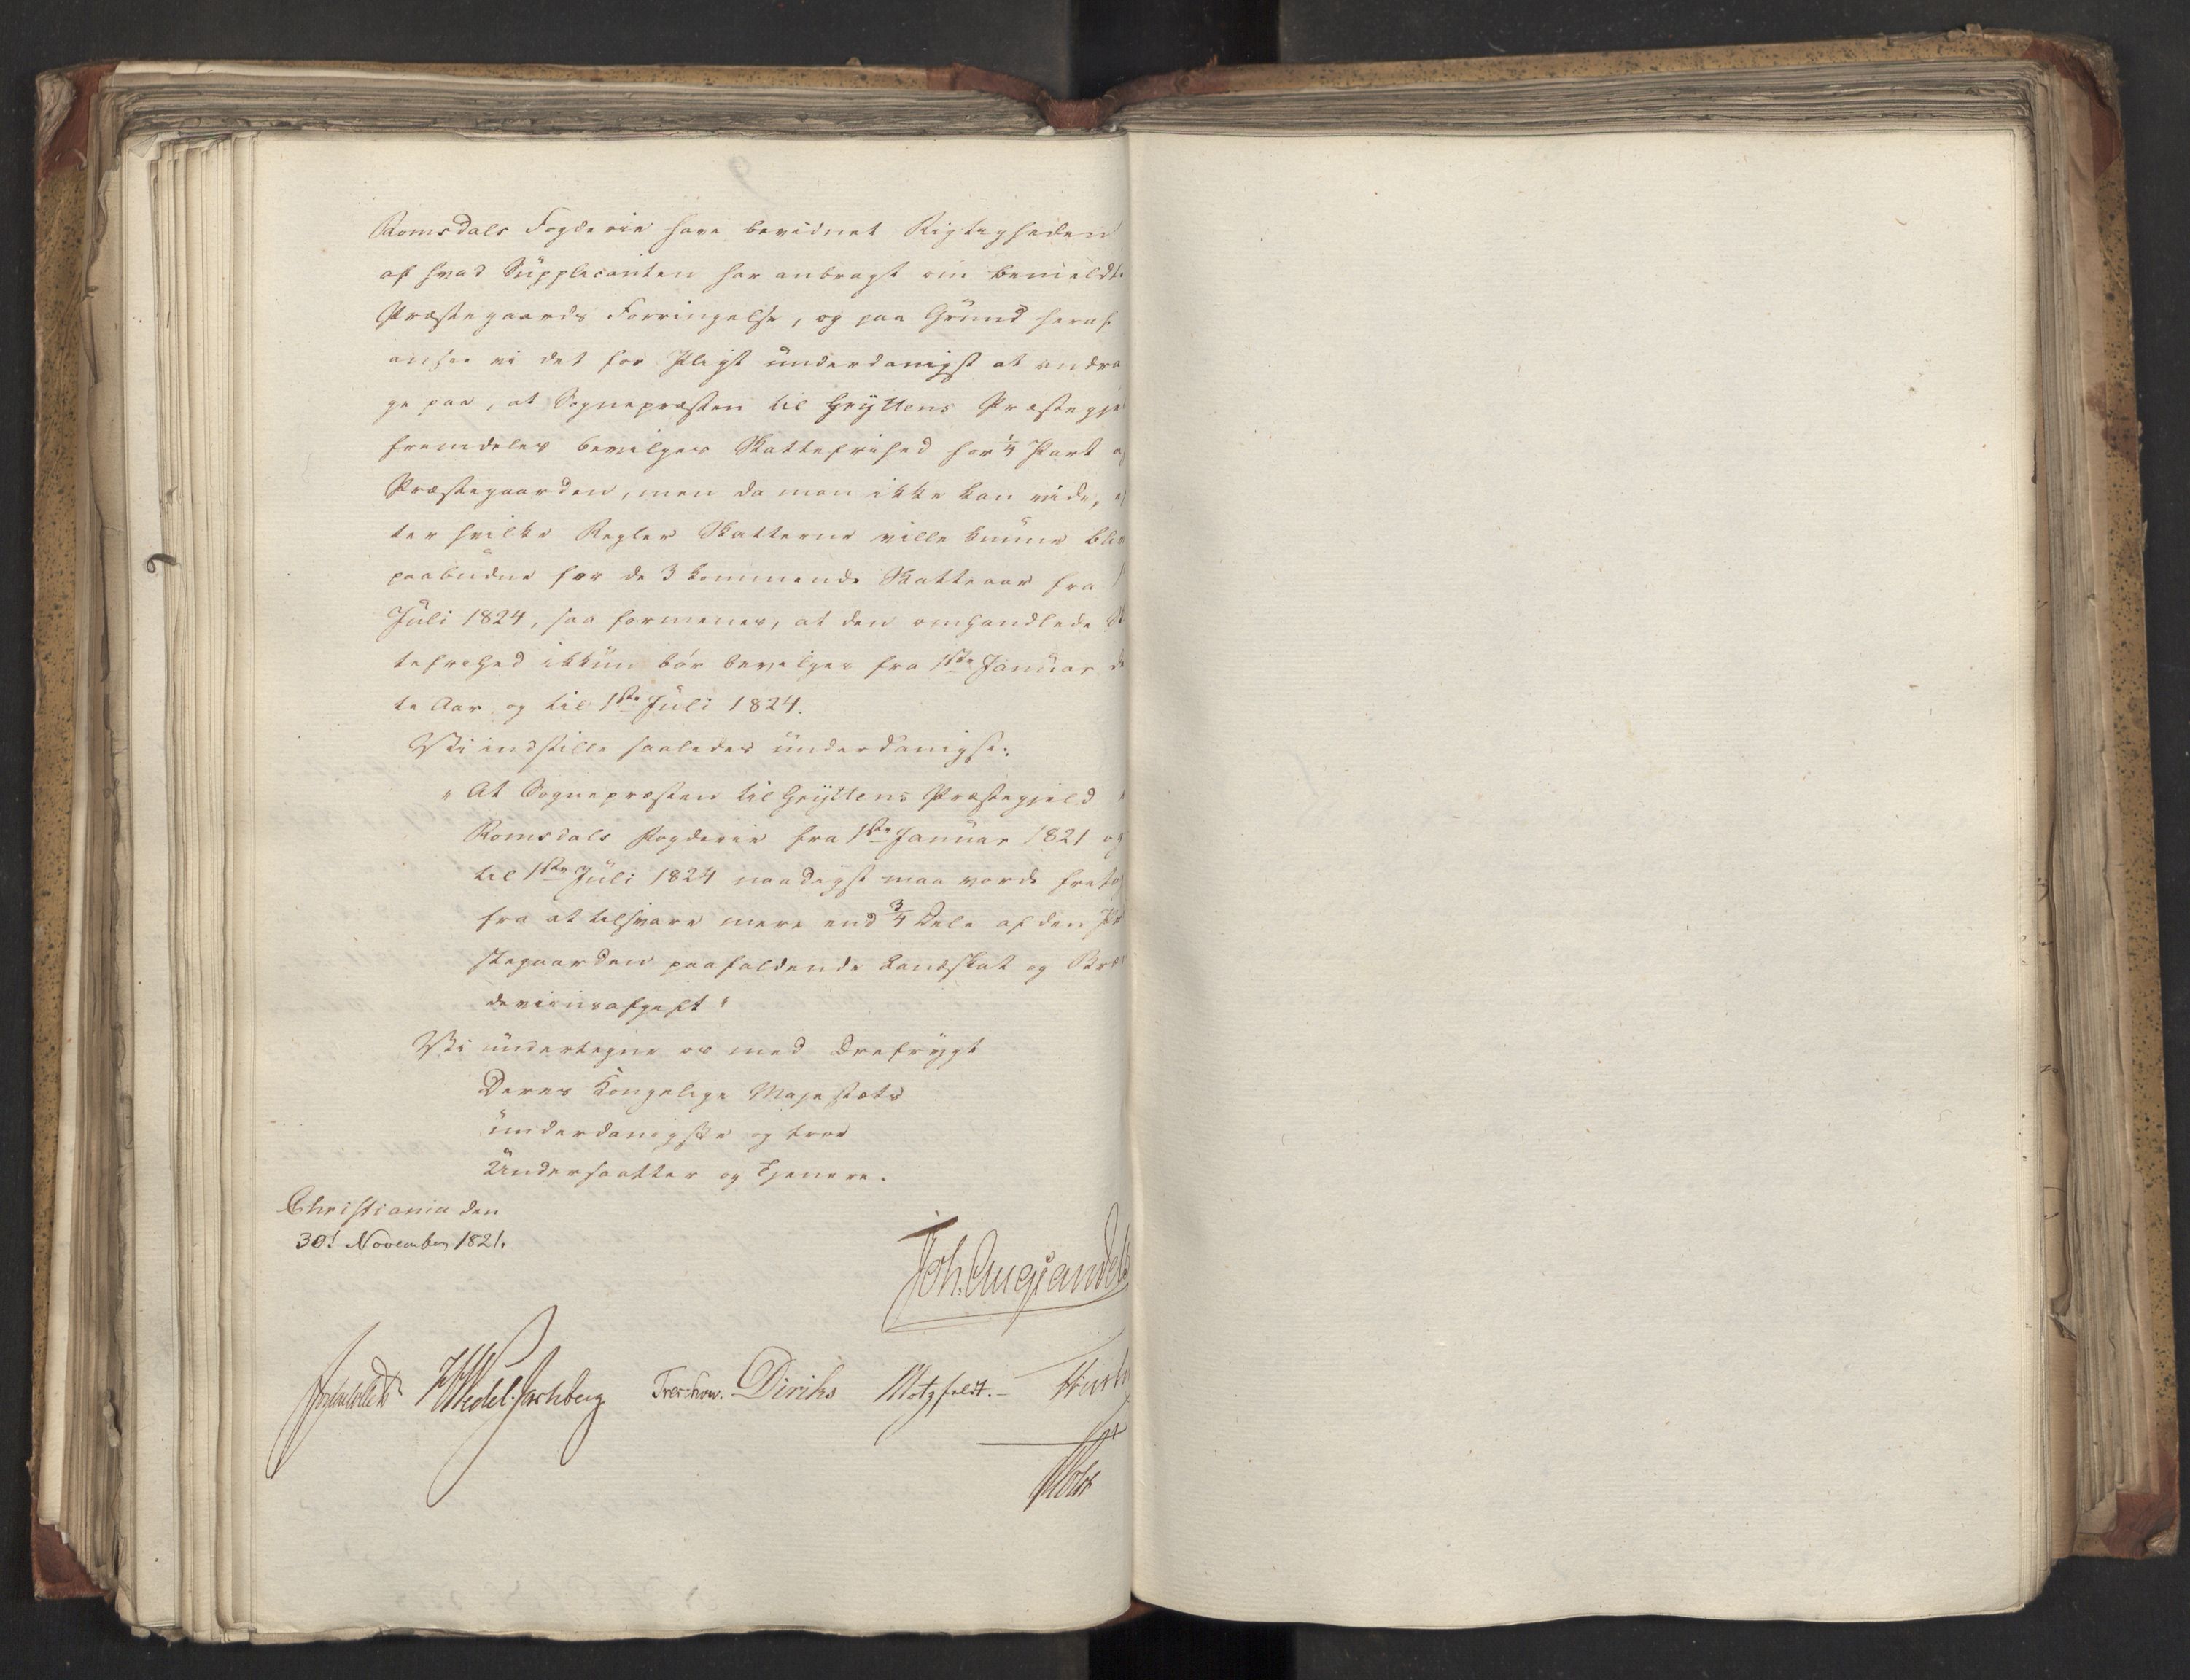 Romsdals Fogderie have bevidnet Rigtigheden
af hvad Supplicanten har anbragt om bemeldte
Præstegaards Forringelse, og paa Grund heraf
ansee vi det for Pligt underdanigst at andra
ge paa, at Sognepræsten til Gryttens Præstegje
fremdeles bevilges Skattefrihed for 1/4 Part af
Præstegaarden, men da man ikke kan vide, ef
ter hvilke Regler Skatterne ville kunne blive
paabudne for de 3 kommende Skatteaar fra
Juli 1824, saa formenes, at den omhandlede Sk
tefrihed ikkun bør bevilges fra 1ste Januar d
te Aar og til 1ste Juli 1824.
Vi indstille saaledes underdanigst:
"At Sognepræsten til Gryttens Præstegjeld i
Romsdals Fogderie fra 1ste Januar 1821 og
til 1ste Juli 1824 naadigst maa vorde fritag
fra at tilsvare mere end 3/4 Dele af den Præ
stegaarden paafaldende Landskat og Bræn
deviinsafgift"
Vi undertegne os med Ærefrygt
Deres Kongelige Majestæts
underdanigste og troe
Undersaatter og Tjenere.
Christiania den
30t November 1821.
Joh. Aug. Sandels
Sommerhielm HWedel-Jarlsberg Treschow. Diriks Motzfeldt.
Holst